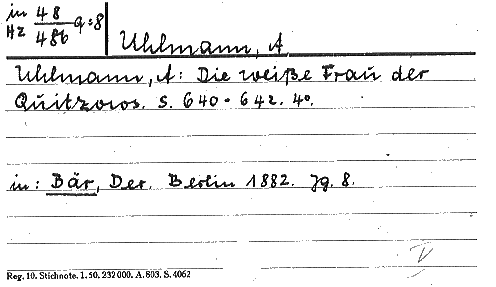 in 48 q:8
HZ 486
Uhlmann, A
Uhlmann, A: Die weiße Frau der
Quitzows. S. 640-642. 4°.
in: Bär, Der. Berlin 1882. Jg. 8.
V
Reg. 10. Stichnote. 1. 50, 232 000. A. 803. S. 4062